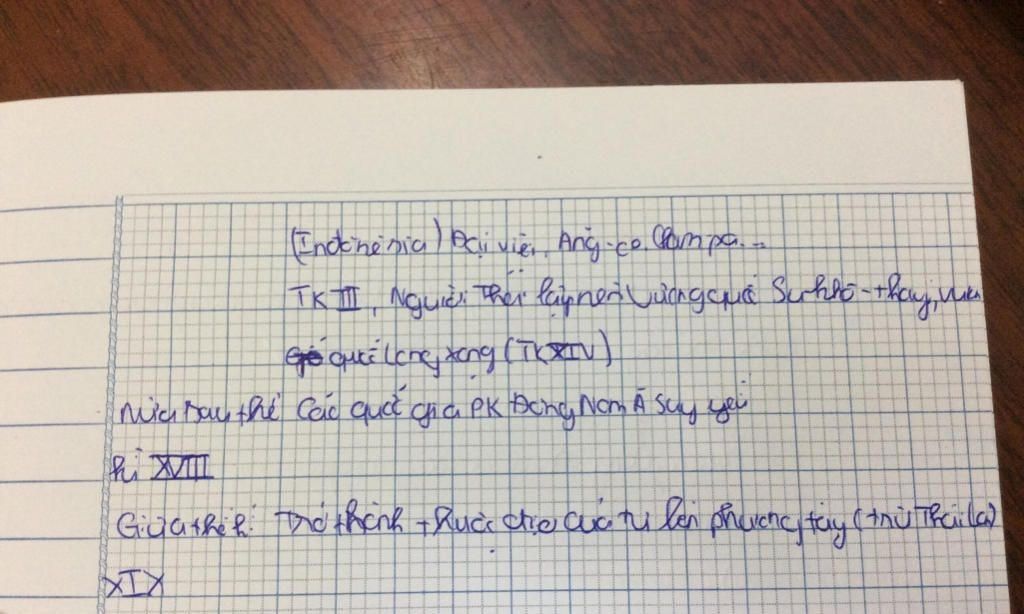 (Indonênia) Đại việt, Ăng-co Chămpa...
TK XIII, Người Thái lập nên Vương quốc Su-khô-thay, vương
quốc Lạng xạng (TK XIV)
Nửa sau thế Các quốc gia PK Đông Nam Á suy yếu
kỉ XVIII
Giữa thế kỉ: Trở thành thuộc địa của tư bản phương tây (trừ Thái lan)
XIX